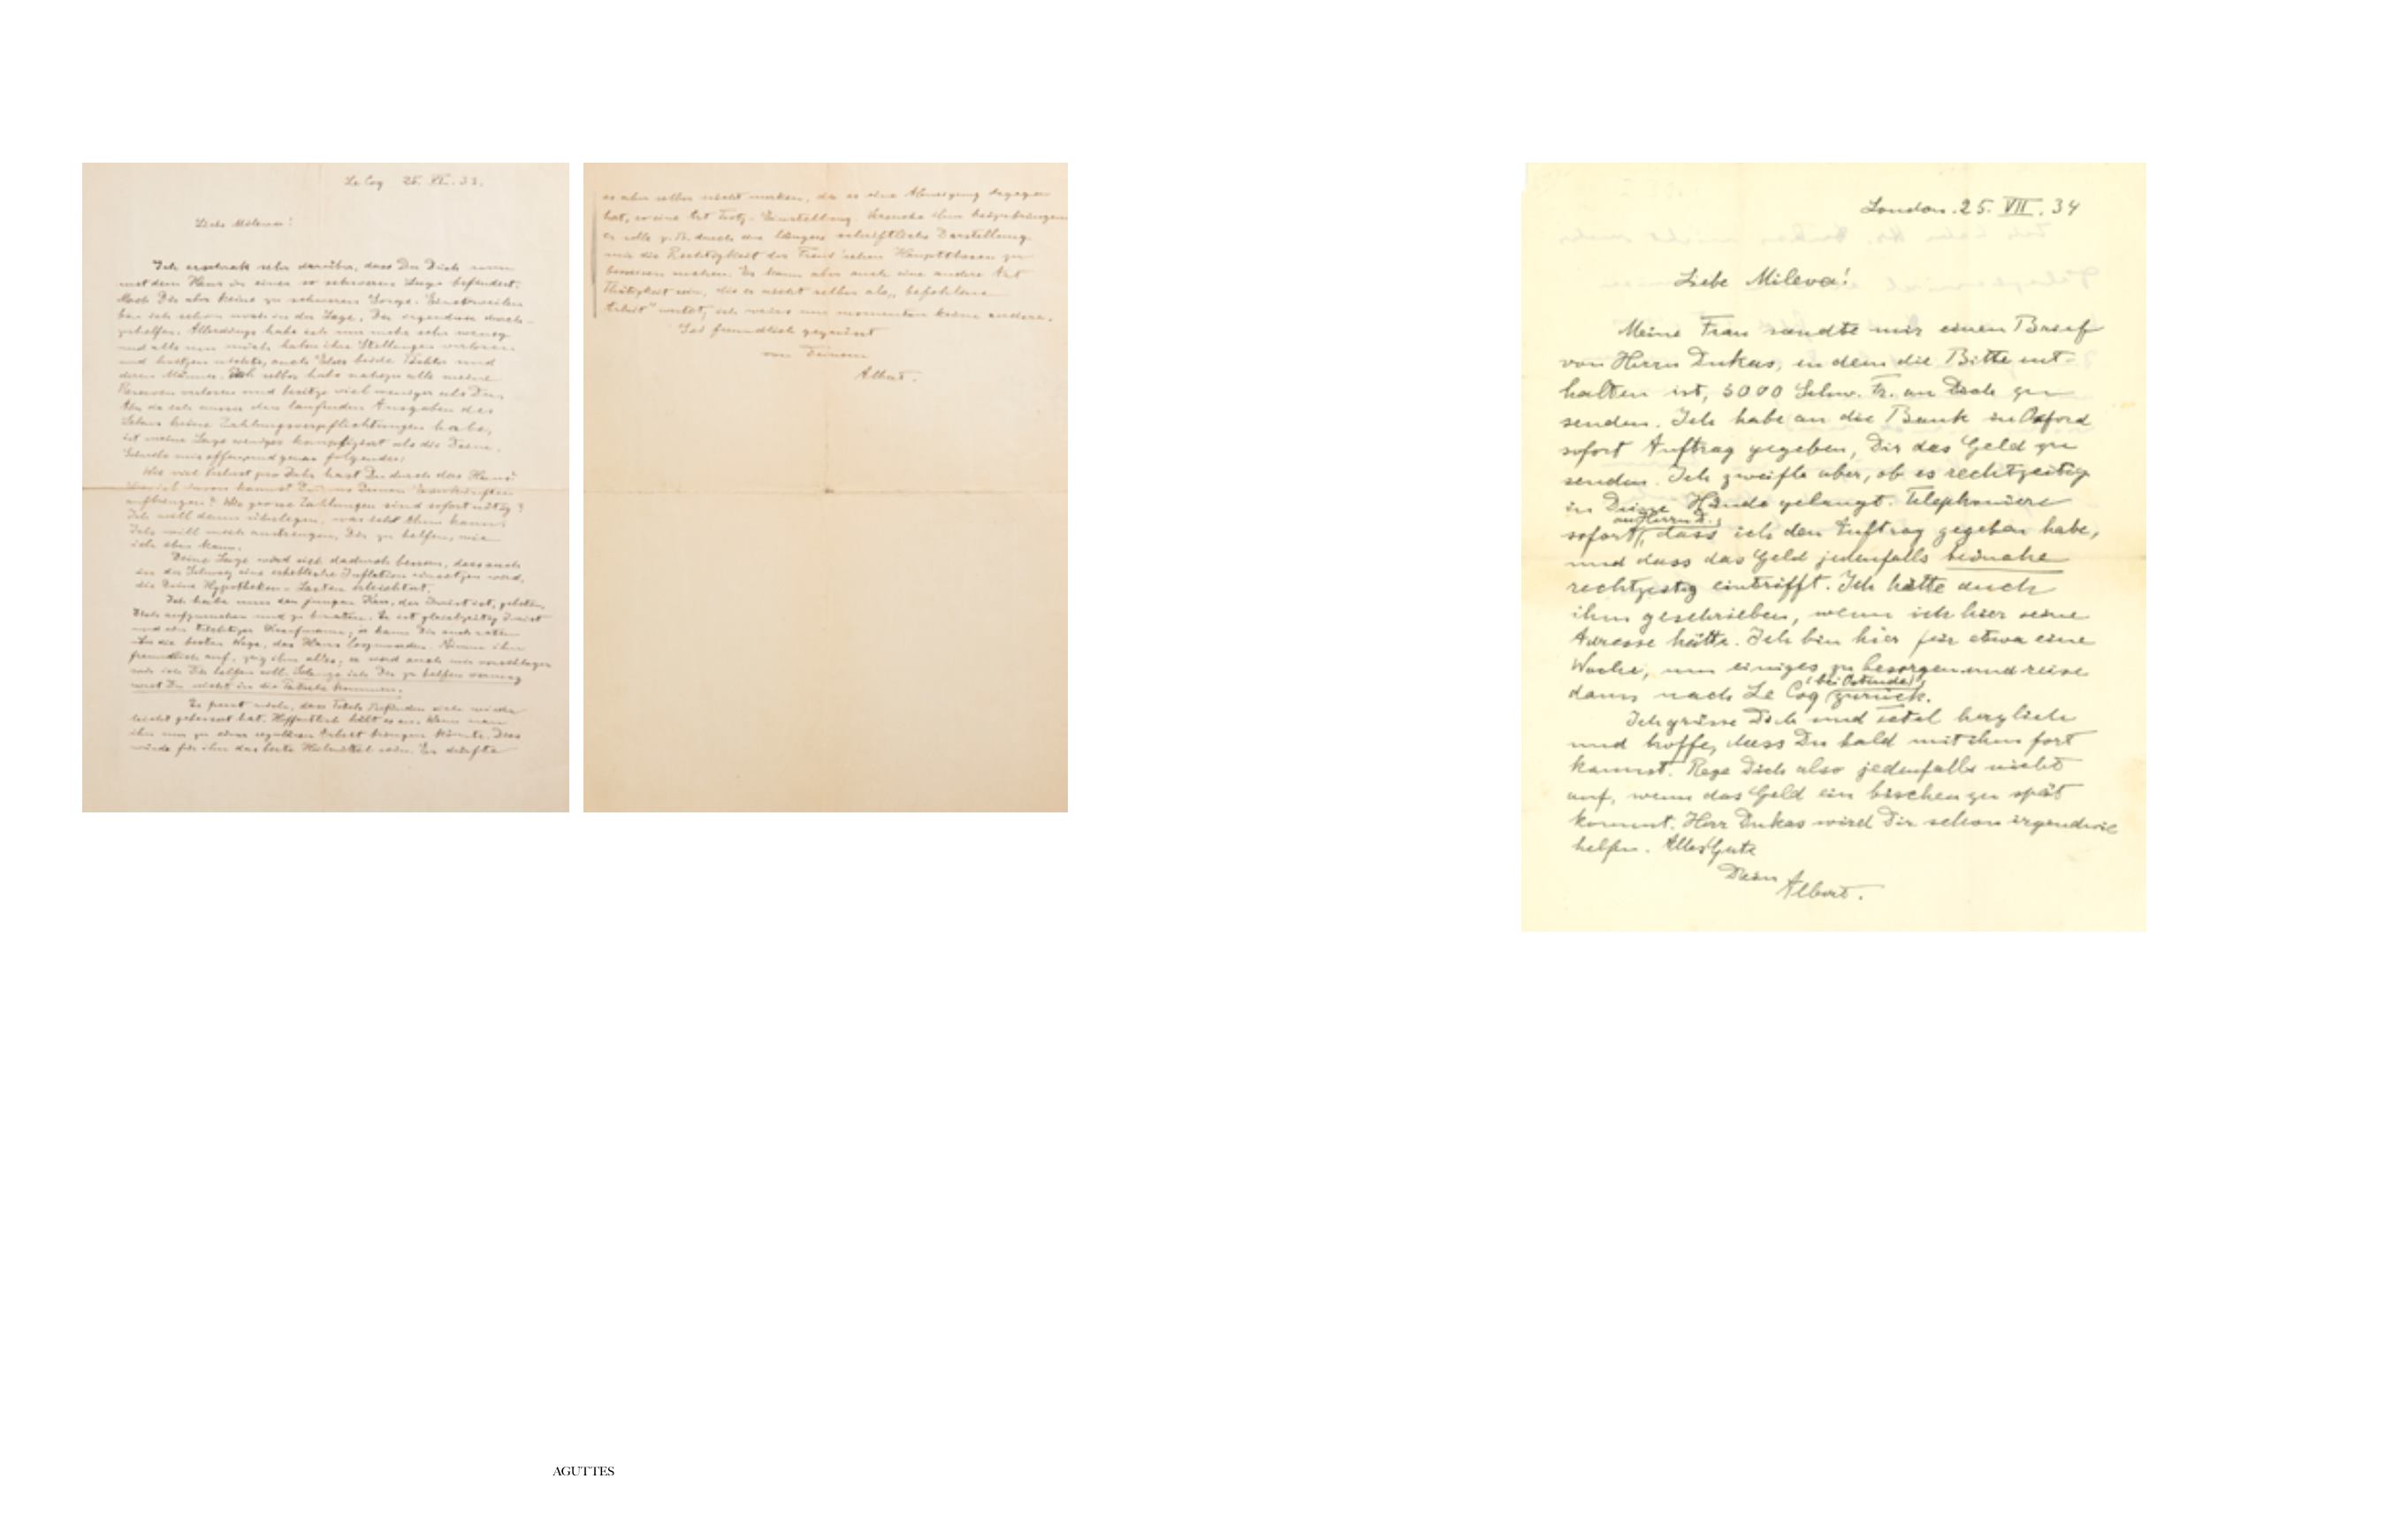 Le Coq 25. VI. 33.
Liebe Mileva!
Ich erschrak sehr darüber, dass Du Dich
mit dem Haus in einer so schweren Lage befindest.
Mach Dir aber keine zu schweren Sorge. Einstweilen
bin ich schon noch in der Lage, Dir irgendwie durch-
zuhelfen. Allerdings habe ich nun mehr sehr wenig
und alle um mich haben ihre Stellungen verloren
und beide Töchter und
deren Männer. Ich selber habe nahezu alle meine
verloren und besitze viel weniger als Du.
Aber da ich ausser den laufenden Ausgaben des
Lebens keine Zahlungsverpflichtungen habe,
ist meine Lage weniger kompliziert als die Deine.
Schreibe mir offen und genau folgendes:
Wie viel Verlust pro Jahr hast Du durch das Haus?
Wieviel davon kannst Du aus Deinen Einkünften
aufbringen? Wie grosse Zahlungen sind sofort nötig?
Ich will dann überlegen, was ich thun kann.
Ich will mich anstrengen, Dir zu helfen, wie
ich eben kann.
Deine Lage wird sich dadurch bessern, dass auch
in der Schweiz eine erhebliche Inflation einsetzen wird,
die Deine Hypotheken-Lasten erleichtert.
Ich habe nun den jungen der Jurist ist, gebeten,
Dich aufzusuchen und zu beraten. Er ist gleichzeitig Jurist
und ein tüchtiger Kaufmann; er kann Dir auch raten
die besten Wege, das Haus loszuwerden. Nimm ihn
freundlich auf, zeig ihm alles; er wird auch mir vorschlagen
wie ich Dir helfen soll. Solange ich Dir zu helfen vermag
wirst Du nicht in die Patsche kommen.
Es freut mich, dass Tetels Befinden sich wieder
leicht gebessert hat. Hoffentlich hält es an. Wenn man
ihn nun zu einer regulären Arbeit bringen könnte. Dies
würde für ihn das beste Heilmittel sein. Er dürfte
es aber selber nicht merken, da er eine Abneigung dagegen
hat, so eine Art Trotz-Einstellung. Versuche ihm beizubringen
er solle z. B. durch eine längere schriftliche Darstellung
mir die Richtigkeit der Freud'schen Hauptthesen zu
beweisen suchen. Es kann aber auch eine andere Art
Thätigkeit sein, die er nicht selber als „befohlene
Arbeit" wertet; ich weiss nur momentan keine andere.
Sei freundlich gegrüsst
von Deinem
Albert.
London. 25. VII. 34
Liebe Mileva!
Meine Frau sandte mir einen Brief
von Herrn Dukas, in dem die Bitte ent-
halten ist, 5000 Schw. Fr. an Dich zu
senden. Ich habe an die Bank in Oxford
sofort Auftrag gegeben, Dir das Geld zu
senden. Ich zweifle aber, ob es rechtzeitig
in Deine Hände gelangt. Telephoniere
sofort an Herrn D., dass ich den Auftrag gegeben habe,
und dass das Geld jedenfalls beinahe
rechtzeitig eintrifft. Ich hätte auch
ihm geschrieben, wenn ich hier seine
Adresse hätte. Ich bin hier für etwa eine
Woche, um einiges zu besorgen und reise
dann nach Le Coq (bei Ostende) zurück.
Ich grüsse Dich und Tetel herzlich
und hoffe, dass Du bald mit ihm fort
kannst. Rege Dich also jedenfalls nicht
auf, wenn das Geld ein bischen zu spät
kommt. Herr Dukas wird Dir schon irgendwie
helfen. Alles Gute
Dein
Albert.
AGUTTES